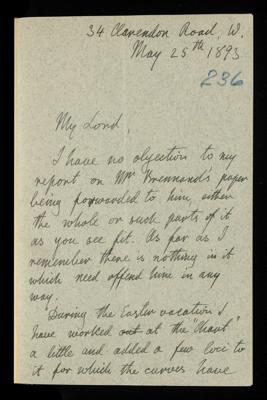 34 Clarendon Road, W.
May 25th 1893
236
My Lord
I have no objection to my
report on Mr Brennand's paper
being forwarded to him, either
the whole or such parts of it
as you see fit. As far as I
remember there is nothing in it
which need offend him in any
way.
During the Easter vacation I
have worked out at the "Chart"
a little and added a few loci to
it for which the curves have